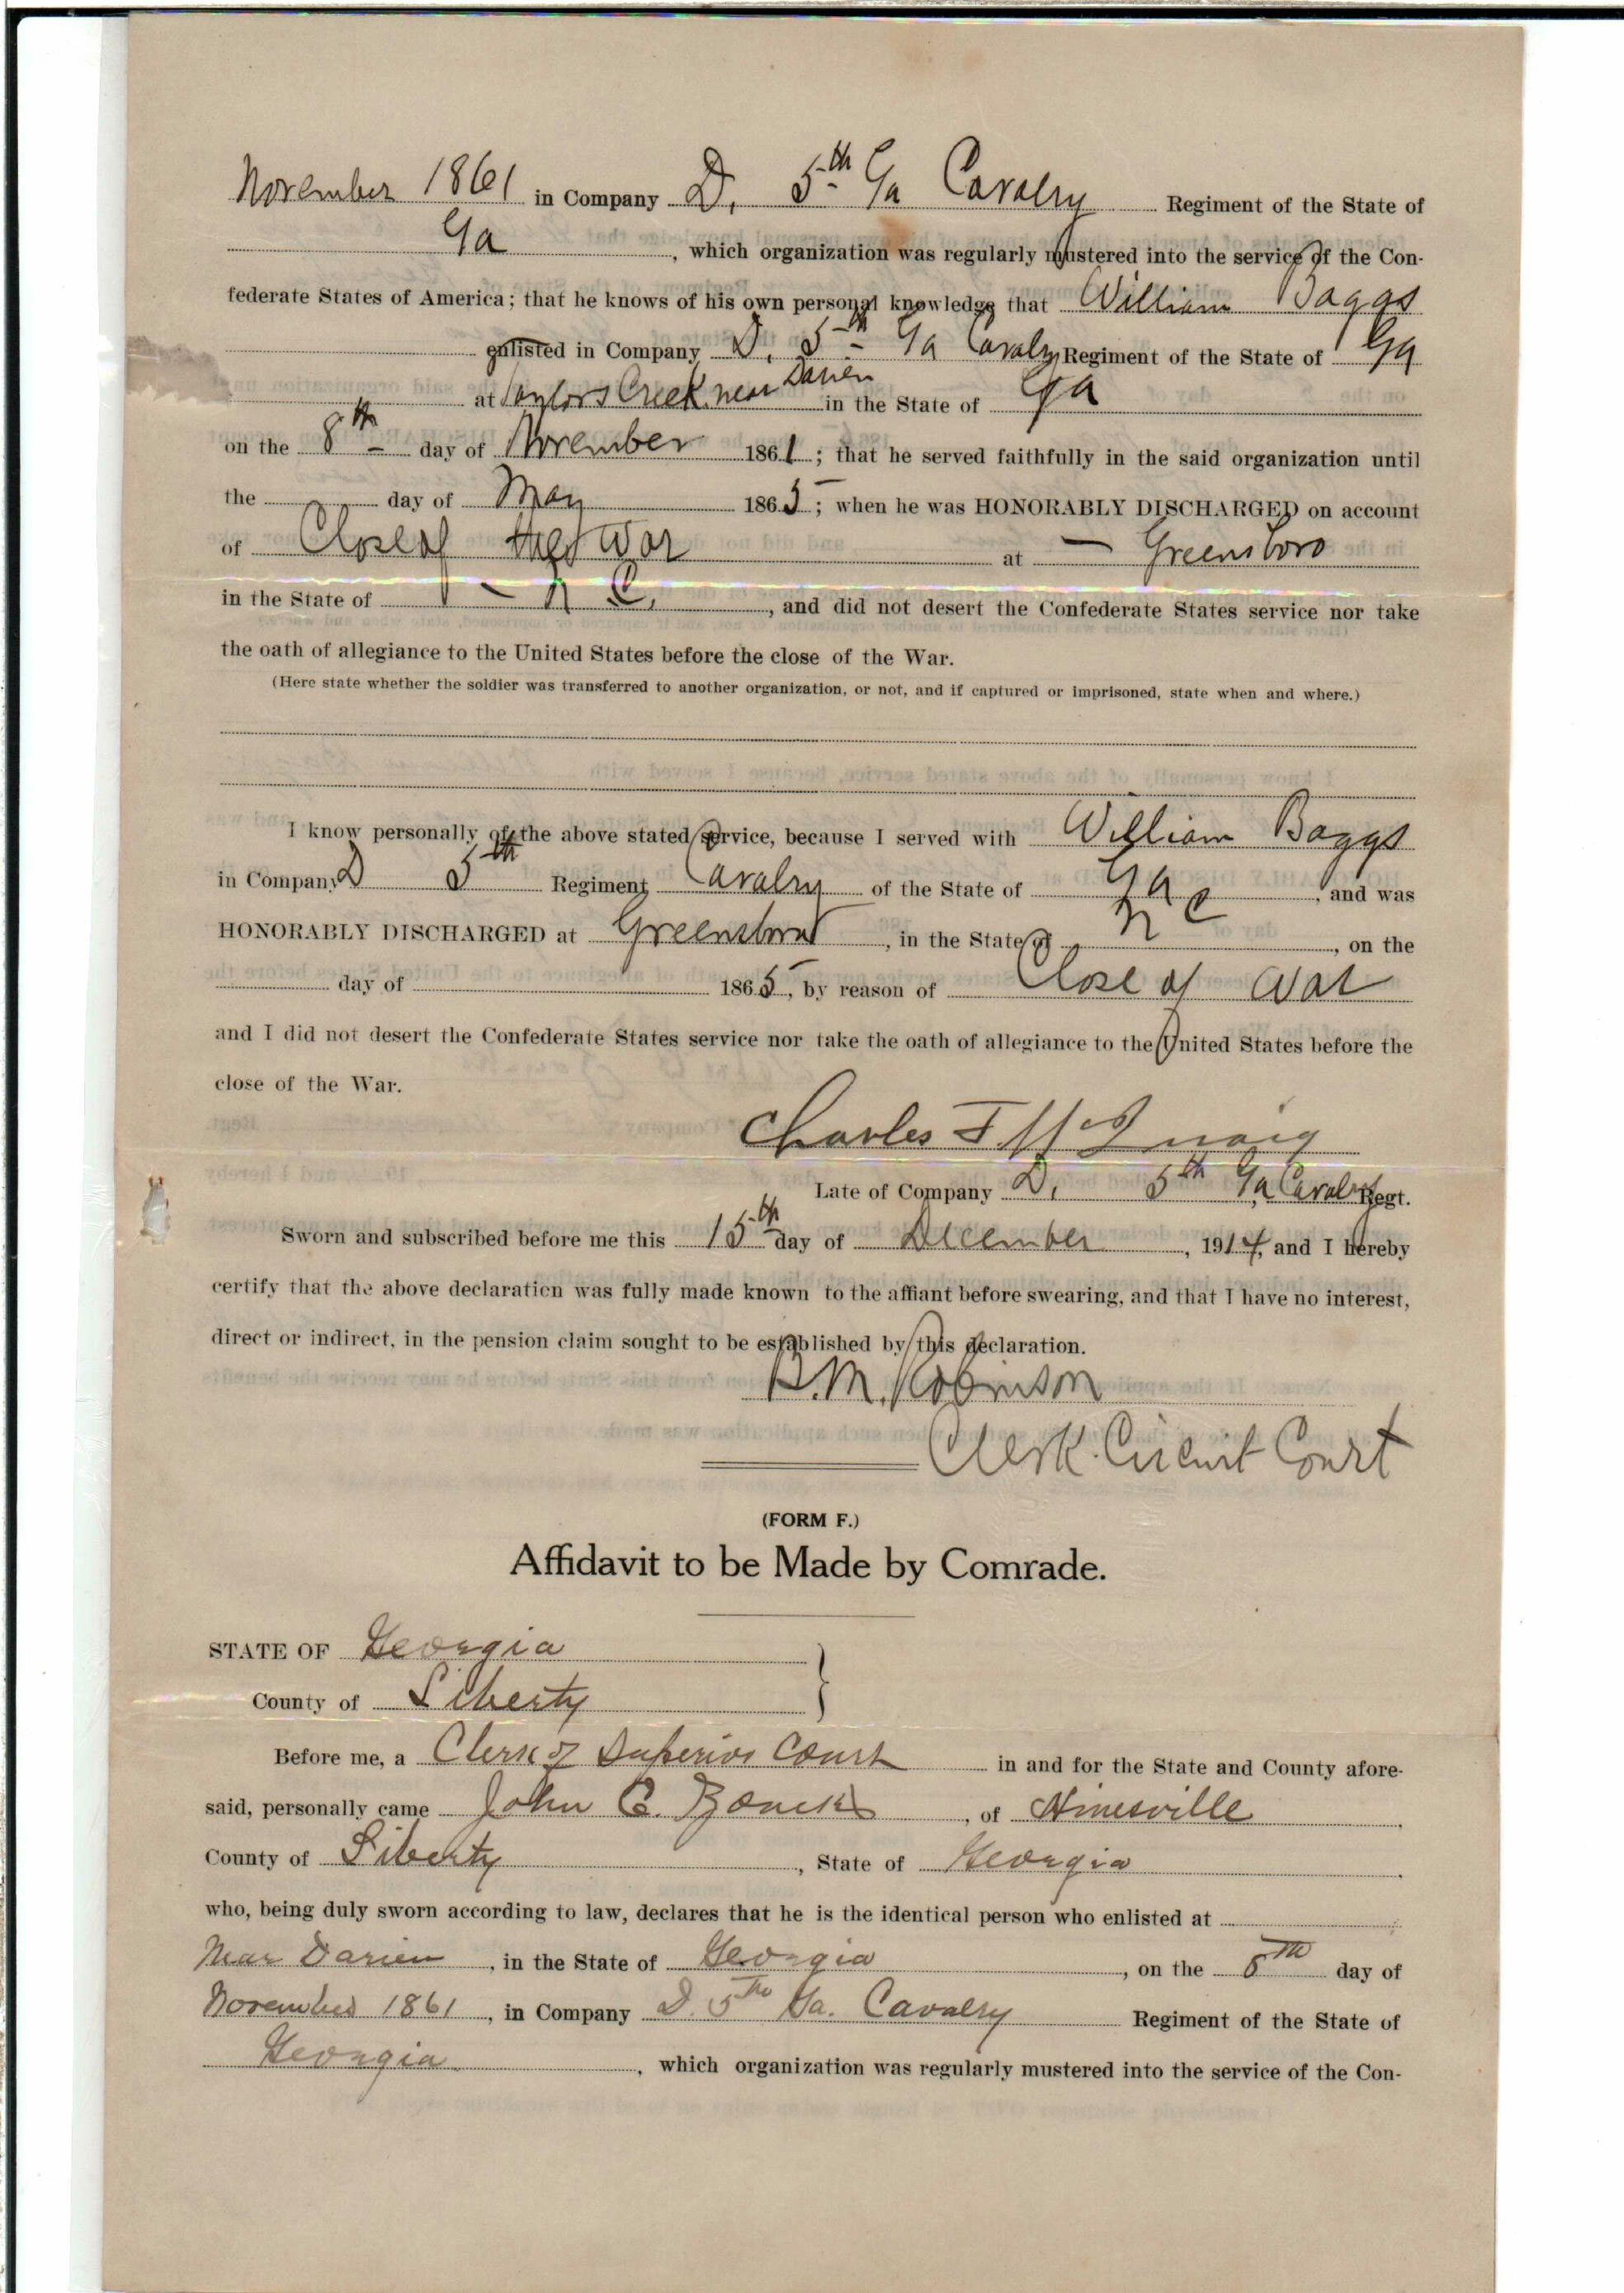 November 1861 in Company D, 5th Ga Cavalry Regiment of the State of
Ga, which organization was regularly mustered into the service of the Con-
federate States of America; that he knows of his own personal knowledge that William Baggs
enlisted in Company D, 5th Ga Cavalry Regiment of the State of Ga
at Taylors Creek near Darien in the State of Ga
on the 8th day of November 1861; that he served faithfully in the said organization until
the day of May 1865; when he was HONORABLY DISCHARGED on account
of Close of the War at Greensboro
in the State of N C, and did not desert the Confederate States service nor take
the oath of allegiance to the United States before the close of the War.
(Here state whether the soldier was transferred to another organization, or not, and if captured or imprisoned, state when and where.)
I know personally of the above stated service, because I served with William Baggs
in Company D 5th Regiment Cavalry of the State of Ga, and was
HONORABLY DISCHARGED at Greensboro, in the State of N C, on the
day of 1865, by reason of Close of War
and I did not desert the Confederate States service nor take the oath of allegiance to the United States before the
close of the War.
Charles F
Late of Company D, 5th Ga Cavalry Regt.
Sworn and subscribed before me this 15th day of December, 1914, and I hereby
certify that the above declaration was fully made known to the affiant before swearing, and that I have no interest,
direct or indirect, in the pension claim sought to be established by this declaration.
B.M. Robinson
Clerk Circuit Court
(FORM F.)
Affidavit to be Made by Comrade.
STATE OF Georgia
County of Liberty
Before me, a Clerk of Superior Court in and for the State and County afore-
said, personally came John C., of Hinesville
County of Liberty, State of Georgia
who, being duly sworn according to law, declares that he is the identical person who enlisted at
Near Darien, in the State of Georgia, on the 8th day of
November 1861, in Company D. 5th Ga. Cavalry Regiment of the State of
Georgia, which organization was regularly mustered into the service of the Con-